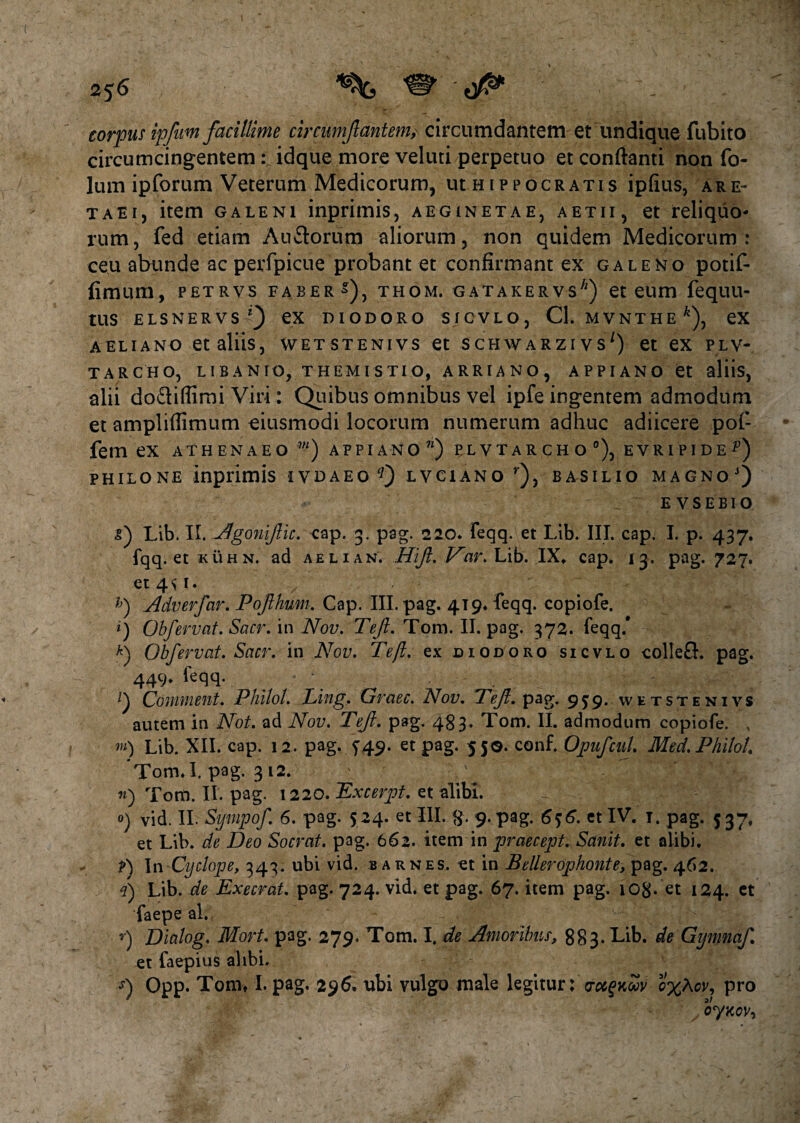 256
corpus ipſum facillime circumſtantem, circumdantem et undique ſubito
circumcingentem: idque more veluti perpetuo et conſtanti non ſo-
lum ipſorum Veterum Medicorum, ut HIPPOCRATIS ipſius, ARE-
TAEI, item GALENI inprimis, AEGINETAE, AETII, et reliquo-
rum, ſed etiam Auctorum aliorum, non quidem Medicorum:
ceu abunde ac perſpicue probant et confirmant ex GALENO potiſ-
ſimum, PETRVS FABER g), THOM. GATAKERVS h) et eum ſequu-
tus ELSNERVS i) ex DIODORO SICVLO, Cl. MVNTHE k), ex
AELIANO et aliis, WETSTENIVS et SCHWARZIVS l) et ex PLV-
TARCHO, LIBANIO, THEMISTIO, ARRIANO, APPIANO et aliis,
alii doctiſſimi Viri: Quibus omnibus vel ipſe ingentem admodum
et ampliſſimum eiusmodi locorum numerum adhuc adiicere poſ-
ſem ex ATHENAEO m) APPIANO n) PLVTARCHO o), EVRIPIDE p)
PHILONE inprimis IVDAEO q) LVCIANO r), BASILIO MAGNO s)
EVSEBIO
g) Lib. II. Agoniſtic. cap. 3. pag. 220. ſeqq. et Lib. III. cap. I. p. 437.
ſqq. et KÜHN. ad AELIAN. Hiſt. Var. Lib. IX. cap. 13. pag. 727.
et 451.
h) Adverſar. Poſthum. Cap. III. pag. 419. ſeqq. copioſe.
i) Obſervat. Sacr. in Nov. Teſt. Tom. II. pag. 372. ſeqq.
k) Obſervat. Sacr. in Nov. Teſt. ex DIODORO SICVLO collect. pag.
449. ſeqq.
l) Comment. Philol. Ling. Graec. Nov. Teſt. pag. 959. WETSTENIVS
autem in Not. ad Nov. Teſt. pag. 483. Tom. II. admodum copioſe.
m) Lib. XII. cap. 12. pag. 549. et pag. 550. conf. Opuſcul. Med. Philol.
Tom. I. pag. 312.
n) Tom. II. pag. 1220. Excerpt. et alibi.
o) vid. II. Sympoſ. 6. pag. 524. et III. 8. 9. pag. 656. et IV. 1. pag. 537.
et Lib. de Deo Socrat. pag. 662. item in praecept. Sanit. et alibi.
p) In Cyclope, 343. ubi vid. BARNES. et in Bellerophonte, pag. 462.
q) Lib. de Execrat. pag. 724. vid. et pag. 67. item pag. 108. et 124. et
ſaepe al.
r) Dialog. Mort. pag. 279. Tom. I. de Amoribus, 883. Lib. de Gymnaſ.
et ſaepius alibi.
s) Opp. Tom. I. pag. 296. ubi vulgo male legitur: σαρκῶν ὄχλον, pro
ὄγκον,